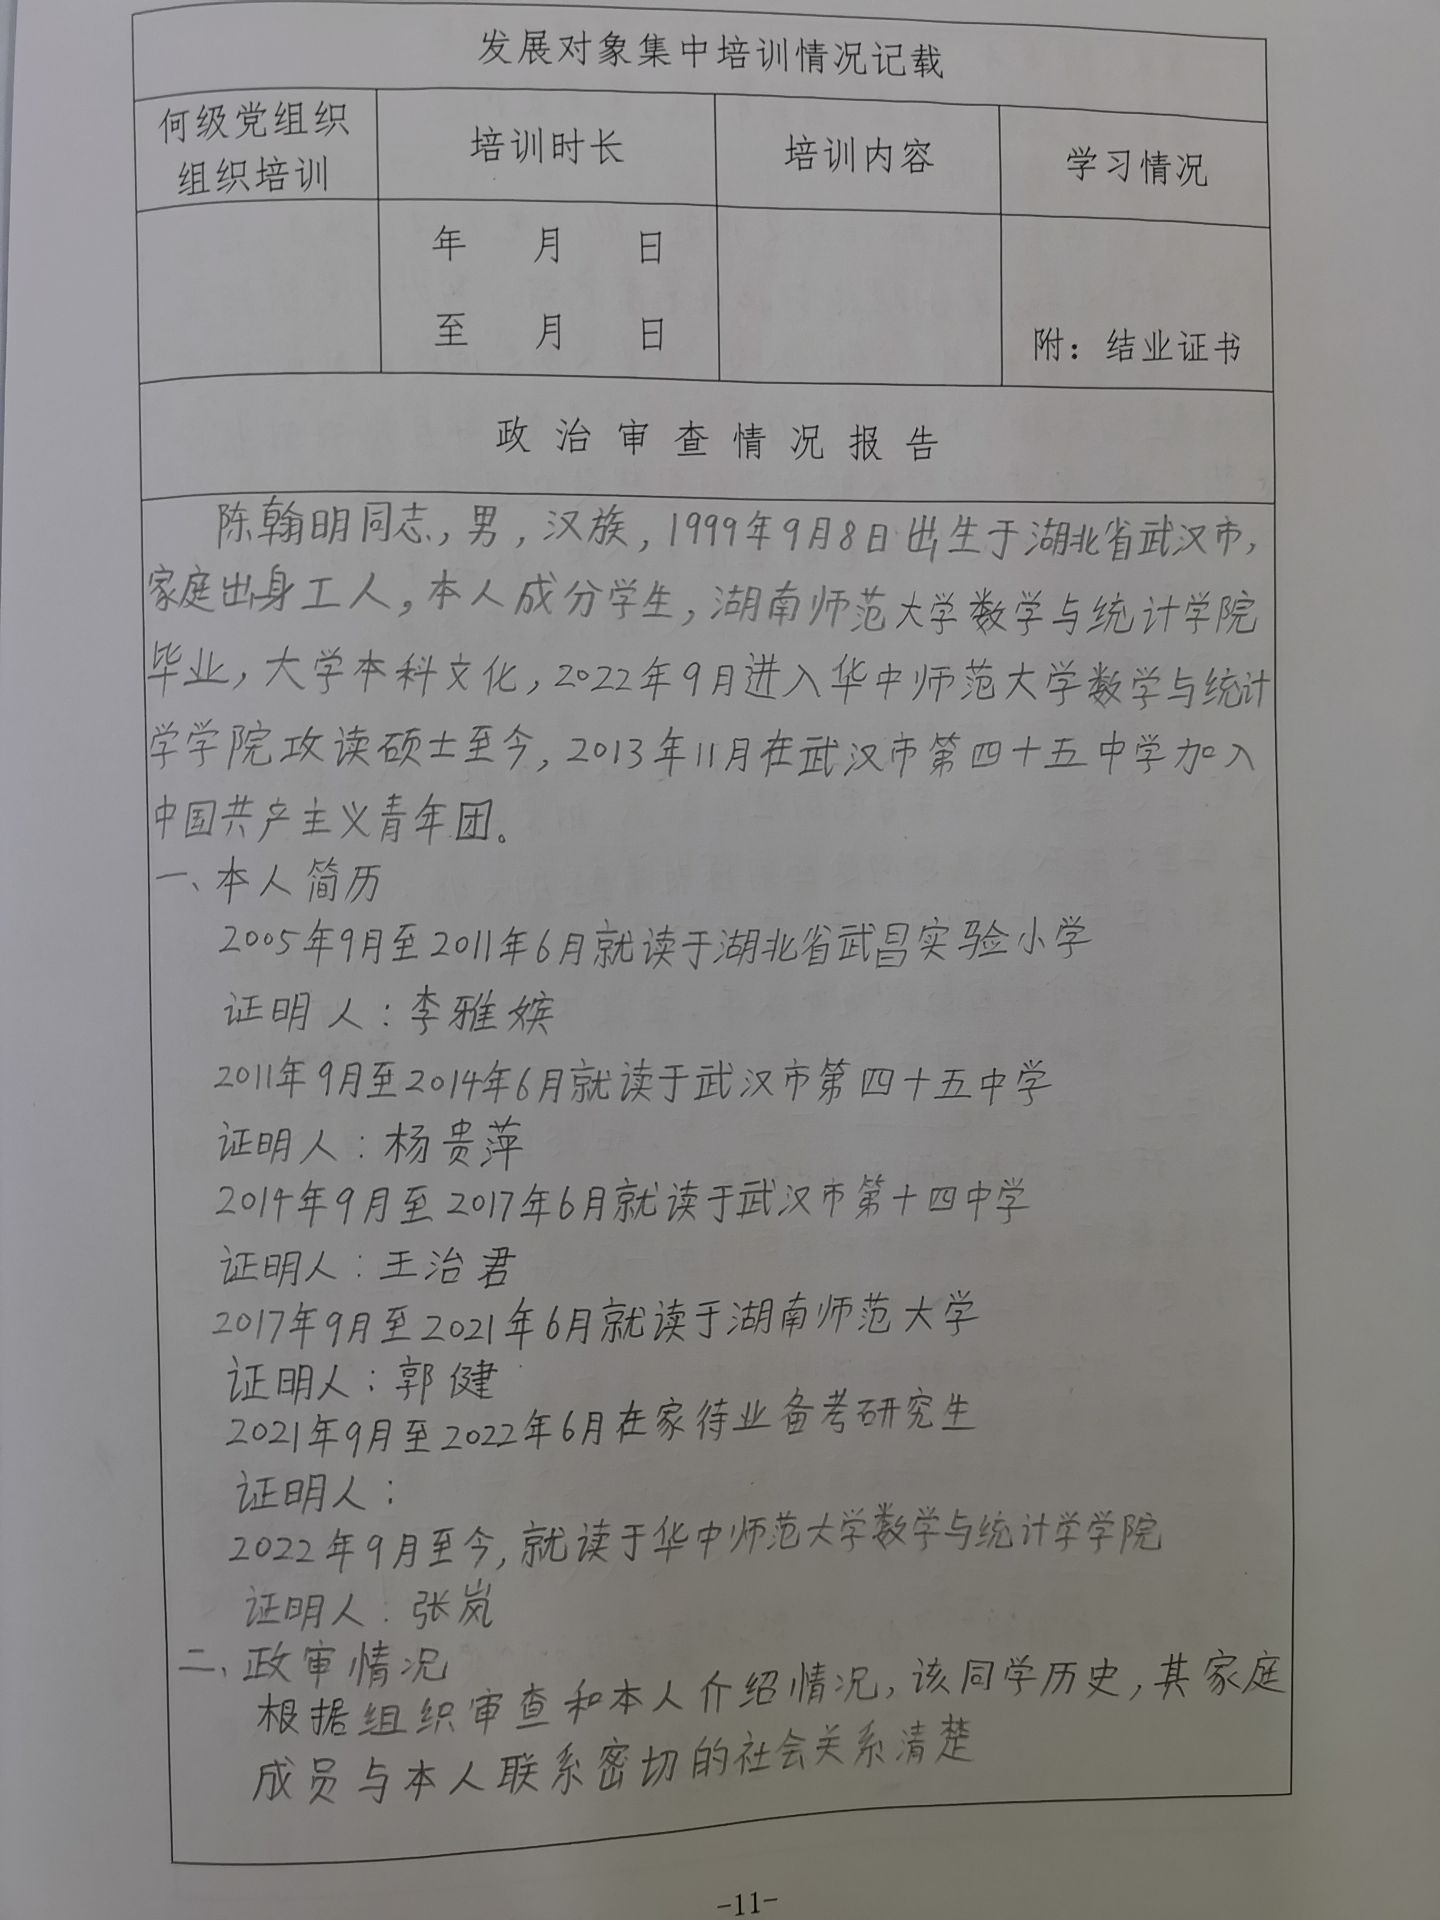 发展对象集中培训情况记载
何级党组织
组织培训
培训时长
培训内容
学习情况
年 月 日
至 月 日
附：结业证书
政治审查情况报告
陈翰明同志，男，汉族，1999年9月8日出生于湖北省武汉市，
家庭出身工人，本人成分学生，湖南师范大学数学与统计学院
毕业，大学本科文化，2022年9月进入华中师范大学数学与统计
学学院攻读硕士至今，2013年11月在武汉市第四十五中学加入
中国共产主义青年团。
一、本人简历
2005年9月至2011年6月就读于湖北省武昌实验小学
证明人：李雅嫔
2011年9月至2014年6月就读于武汉市第四十五中学
证明人：杨贵萍
2014年9月至2017年6月就读于武汉市第十四中学
证明人：王治君
2017年9月至2021年6月就读于湖南师范大学
证明人：郭健
2021年9月至2022年6月在家待业备考研究生
证明人：
2022年9月至今，就读于华中师范大学数学与统计学学院
证明人：张岚
二、政审情况
根据组织审查和本人介绍情况，该同学历史，其家庭
成员与本人联系密切的社会关系清楚
-11-